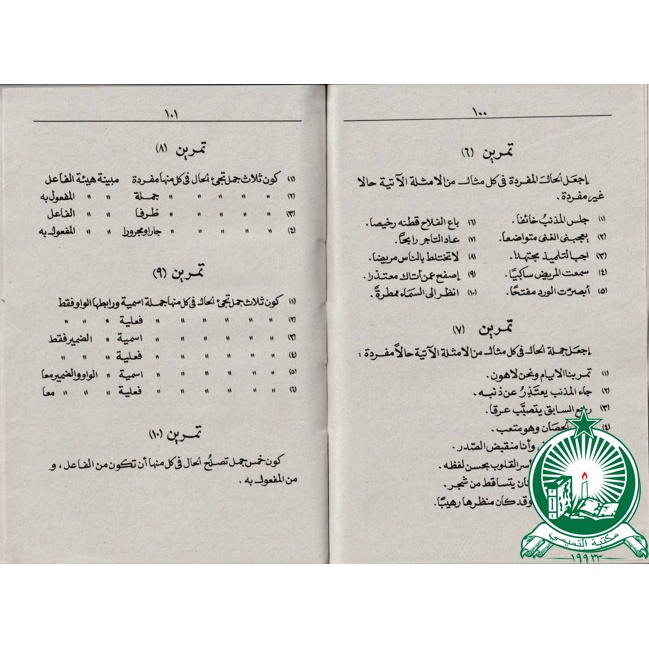 ١٠٠
تمرين (٦)
إجعل الحال المفردة في كل مثال من الامثلة الآتية حالا
غير مفردة.
(١) جلس المذنب خائفا. (٦) باع الفلاح قطنه رخيصا.
(٢) يعجبني الغنى متواضعا. (٧) عاد التاجر رابحا.
(٣) احب التلميذ مجتهدا. (٨) لا تختلط بالناس مريضا.
(٤) سمعت المريض شاكيا. (٩) إصفح عمن أتاك معتذرا.
(٥) أبصرت الورد مفتحا. (١٠) انظر الى السماء ممطرة.
تمرين (٧)
إجعل جملة الحال في كل مثال من الامثلة الآتية حالا مفردة :
(١) تمر بنا الايام ونحن لاهون.
(٢) جاء المذنب يعتذر عن ذنبه.
(٣) السابق يتصبب عرقا.
(٤) الحصان وهو متعب.
وأنا منقبض الصدر.
أسر القلوب بحسن لفظه.
يتساقط من شجر.
وقد كان منظرها رهيبا.
١٠١
تمرين (٨)
(١) كون ثلاث جمل تجئ الحال في كل منها مفردة مبينة هيئة الفاعل
(٢) " " " " " " " جملة " " المفعول به
(٣) " " " " " " " ظرفا " " الفاعل
(٤) " " " " " " " جارا ومجرورا " " المفعول به
تمرين (٩)
(١) كون ثلاث جمل تجئ الحال في كل منها جملة اسمية ورابطها الواو فقط
(٢) " " " " " " " فعلية " " "
(٣) " " " " " " " اسمية " الضمير فقط
(٤) " " " " " " " فعلية " " "
(٥) " " " " " " " اسمية " الواو والضمير معا
(٦) " " " " " " " فعلية " " " معا
تمرين (١٠)
كون خمس جمل تصلح الحال في كل منها أن تكون من الفاعل ، و
من المفعول به .
مكتبة التسيسي